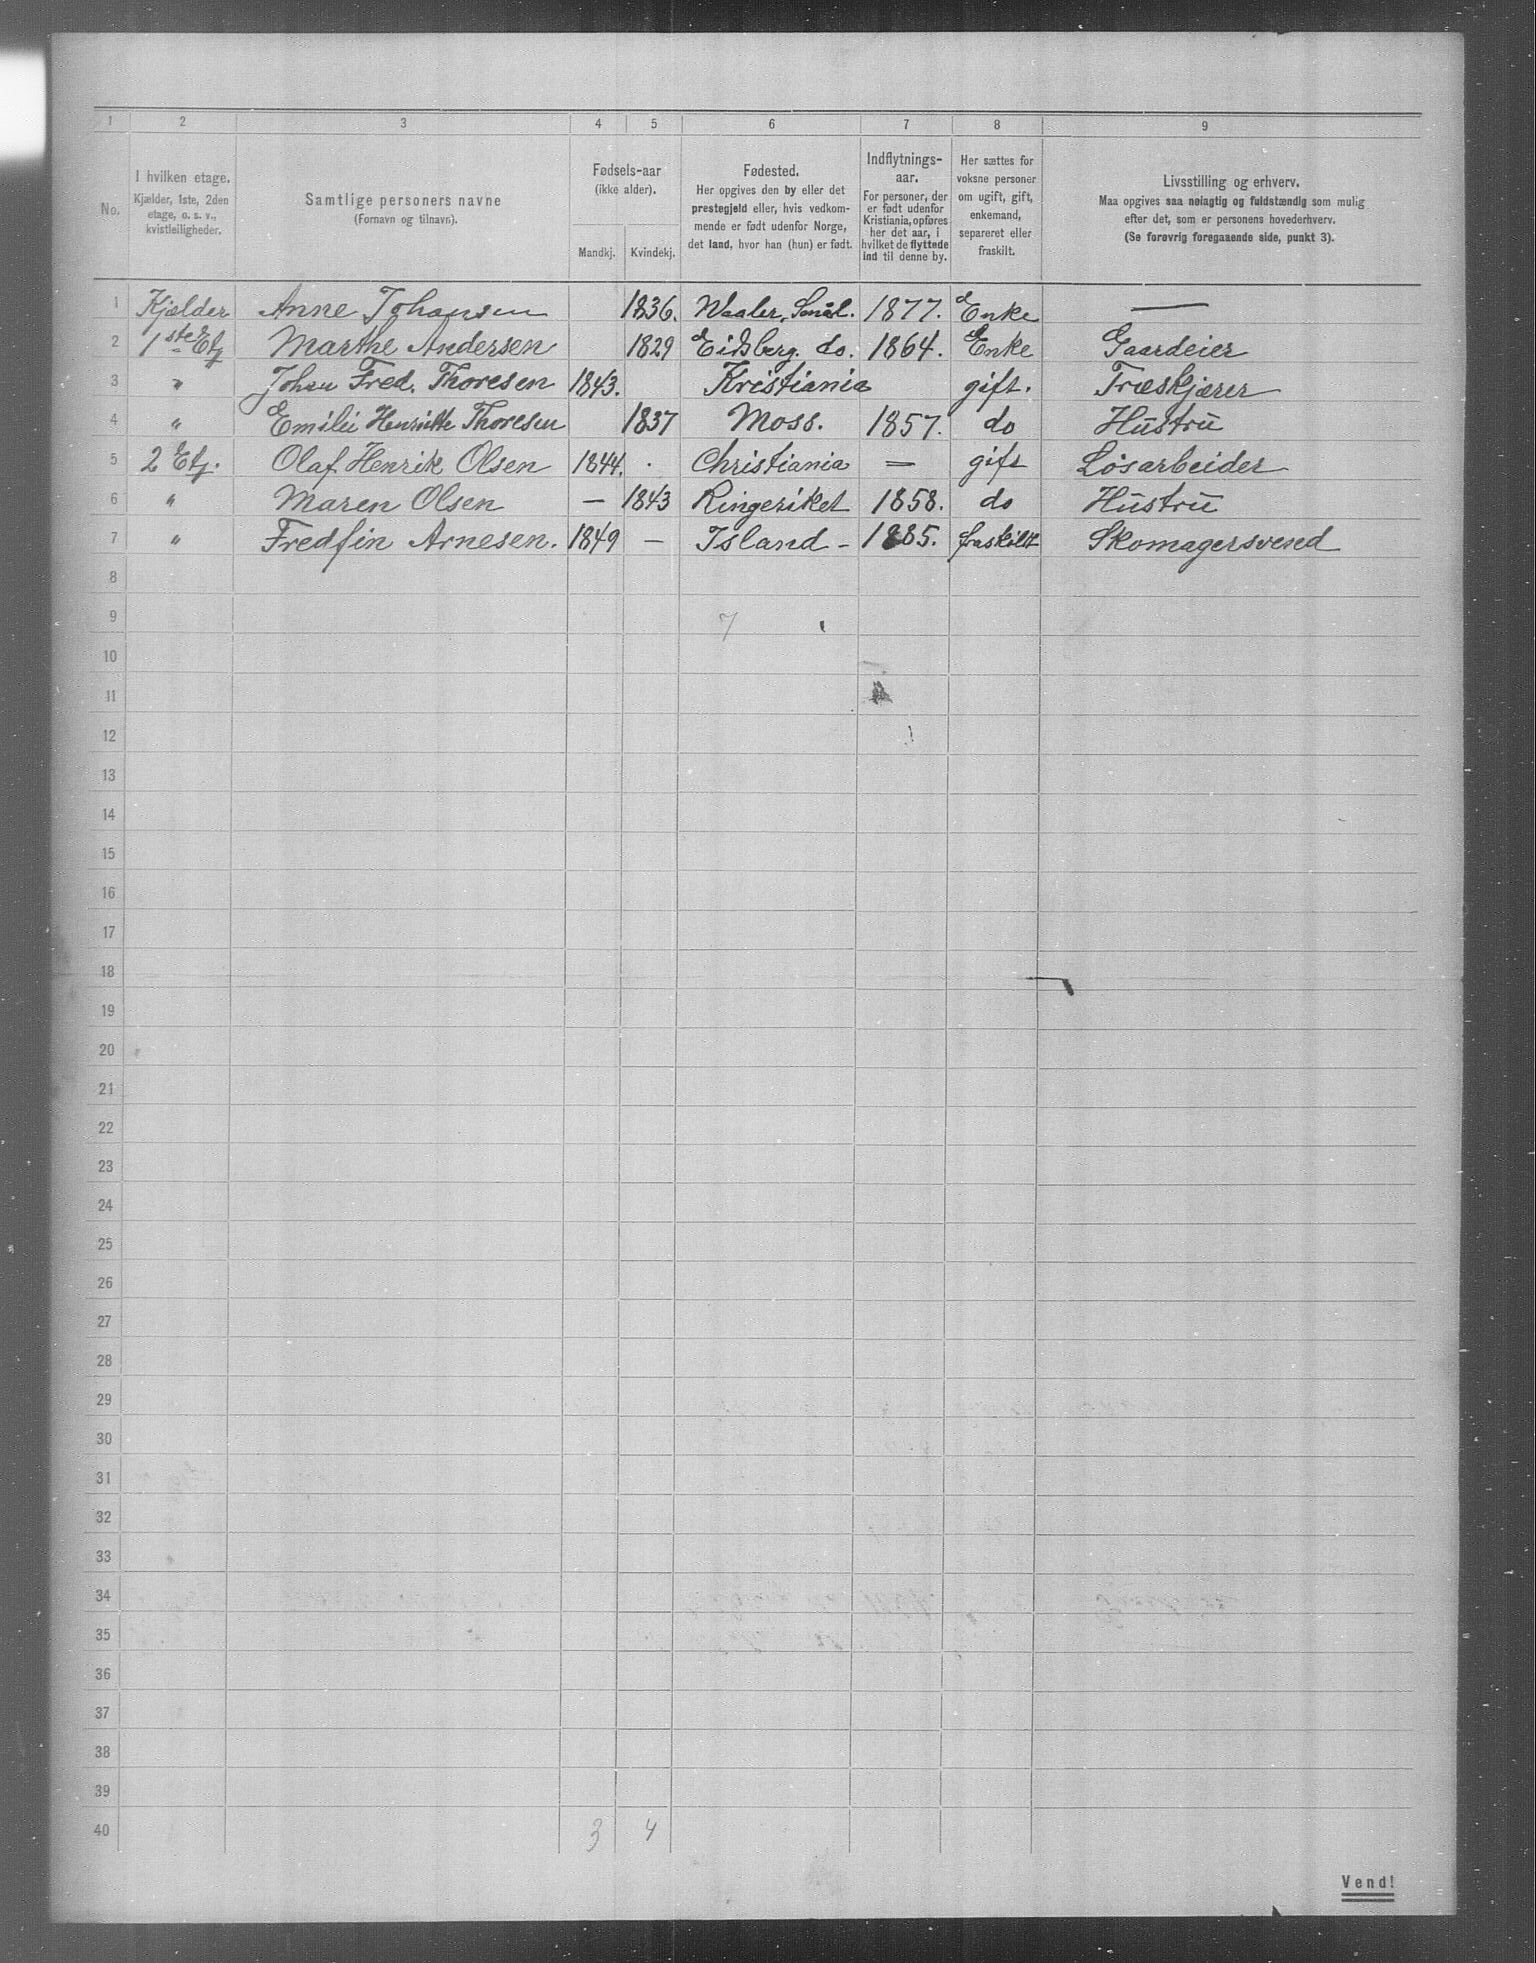 1 2 3 4 5 6 7 8 9
No.
I hvilken etage.
Kjælder, 1ste, 2den
etage, o. s. v.,
kvistleiligheder.
Samtlige personers navne
(Fornavn og tilnavn).
Fødsels-aar
(ikke alder).
Mandkj. Kvindekj.
Fødested.
Her opgives den by eller det
prestegjeld eller, hvis vedkom-
mende er født udenfor Norge,
det land, hvor han (hun) er født.
Indflytnings-
aar.
For personer, der
er født udenfor
Kristiania, opføres
her det aar, i
hvilket de flyttede
ind til denne by.
Her sættes for
voksne personer
om ugift, gift,
enkemand,
separeret eller
fraskilt.
Livsstilling og erhverv.
Maa opgives saa nøiagtig og fuldstændig som mulig
efter det, som er personens hovederhverv.
(Se forøvrig foregaaende side, punkt 3).
1 Kjælder Anne Johansen 1836. Waaler, Smål. 1877. Enke —
2 1ste Etg Marthe Andersen 1829 Eidsberg. do. 1864. Enke Gaardeier
3 " Johan Fred. Thoresen 1843. Kristiania gift. Træskjærer
4 " Emilie Henriette Thoresen 1837 Moss. 1857. do Hustru
5 2 Etg. Olaf Henrik Olsen 1844. . Christiania — gift Løsarbeider
6 " Maren Olsen — 1843 Ringeriket 1858. do Hustru
7 " Fredfin Arnesen. 1849 — Island - 1885. fraskilt Skomagersvend
8
9 7
10
11
12
13
14
15
16
17
18
19
20
21
22
23
24
25
26
27
28
29
30
31
32
33
34
35
36
37
38
39
40 3 4
Vend!